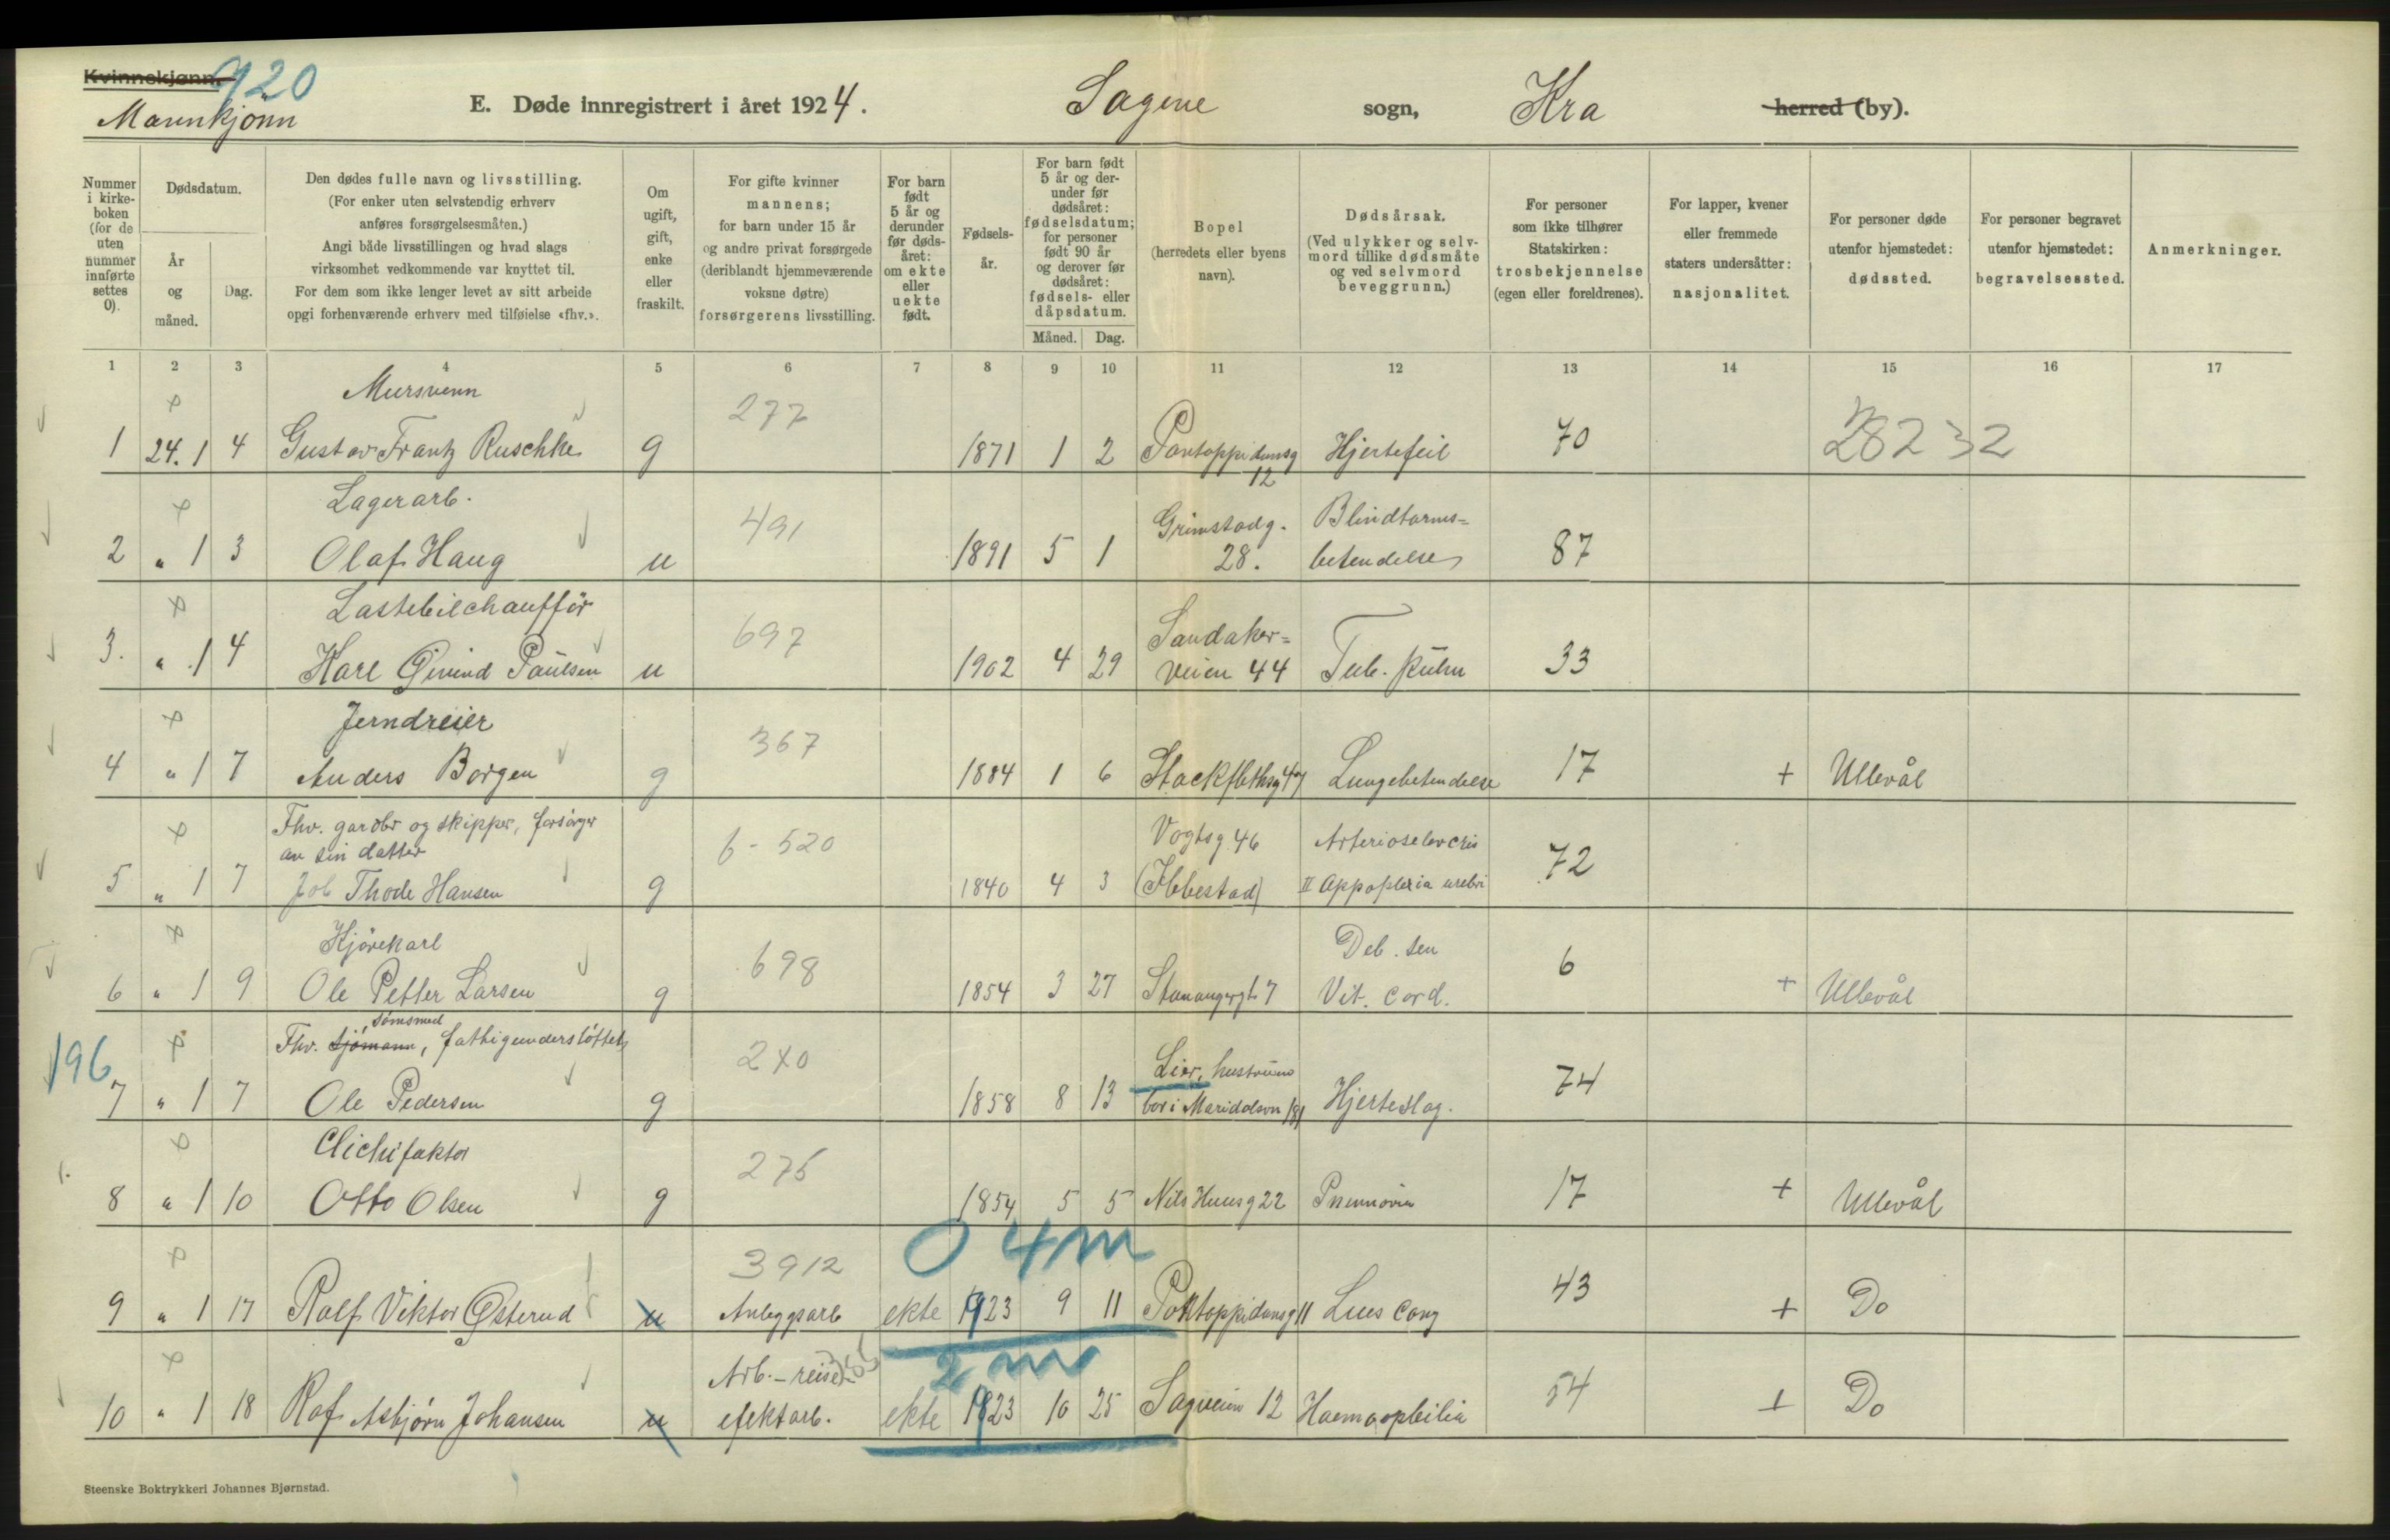 Kvinnekjønn.
920
Mannkjönn
E. Døde innregistrert i året 1924. Sagene sogn, Kra herred (by).
Nummer i kirke-boken (for de uten nummer innførte settes 0).
Dødsdatum.
År og måned.
Dag.
Den dødes fulle navn og livsstilling.
(For enker uten selvstendig erhverv
anføres forsørgelsesmåten.)
Angi både livsstillingen og hvad slags
virksomhet vedkommende var knyttet til.
For dem som ikke lenger levet av sitt arbeide
opgi forhenværende erhverv med tilføielse «fhv.».
Om ugift, gift, enke eller fraskilt.
For gifte kvinner
mannens;
for barn under 15 år
og andre privat forsørgede
(deriblandt hjemmeværende
voksne døtre)
forsørgerens livsstilling.
For barn født 5 år og derunder før døds-året: om ekte eller uekte født.
Fødsels-år.
For barn født
5 år og der-
under før
dødsåret:
fødselsdatum;
for personer
født 90 år
og derover før
dødsåret:
fødsels- eller
dåpsdatum.
Måned. Dag.
Bopel
(herredets eller byens
navn).
Dødsårsak.
(Ved ulykker og selv-
mord tillike dødsmåte
og ved selvmord
beveggrunn.)
For personer
som ikke tilhører
Statskirken:
trosbekjennelse
(egen eller foreldrenes).
For lapper, kvener
eller fremmede
staters undersåtter:
nasjonalitet.
For personer døde
utenfor hjemstedet:
dødssted.
For personer begravet
utenfor hjemstedet:
begravelsessted.
Anmerkninger.
1 2 3 4 5 6 7 8 9 10 11 12 13 14 15 16 17
Mursvenn 277
1 24. 1 4 Gustav Frantz Ruschke g 1871 1 2 Pontoppidansg 12 Hjertefeil 70 28232
Lagerarb. 491 Grimstadg. Blindtarms=
2 " 1 3 Olaf Haug u 1891 5 1 28. betendelse 87
Lastebilchaufför 697 Sandaker=
3. " 1 4 Karl Øivind Paulsen u 1902 4 29 veien 44 Tub. pulm 33
Jerndreier 367
4 " 1 7 Anders Borgen g 1884 1 6 Stockflethsg 47 Lungebetendelse 17 + Ullevål
Fhv. gardbr og skipper, forsörger
av sin datter 6-520 Vogtsg 46 Arteriosclercris
5 " 1 7 Job Thode Hansen g 1840 4 3 (Ibbestad) II Appoplexia crebri 72
Kjörekarl 698 Deb. sen
6 " 1 9 Ole Petter Larsen g 1854 3 27 Stavangergt 7 Vit. cord. 6 + Ullevål
sömsmed
Fhv. sjömann, fattigunderstöttet 240 Lier, hustruen
196
7 " 1 7 Ole Pedersen g 1858 8 13 bor i Maridalsvn 181 Hjerteslag. 74
Clichifaktor 275
8 " 1 10 Otto Olsen g 1854 5 5 Nils Huusg 22 Pneumonia 17 + Ullevål
0 4m
3912
9 " 1 17 Rolf Viktor Østerud u Anleggsarb ekte 1923 9 11 Pontoppidansg 11 Lues cong 43 + Do
2 m
Arb. - reise
10 " 1 18 Rolf Asbjörn Johansen u efektarb. ekte 1923 10 25 Sagveien 12 Haemaophilia 54 + Do
Steenske Boktrykkeri Johannes Bjørnstad.